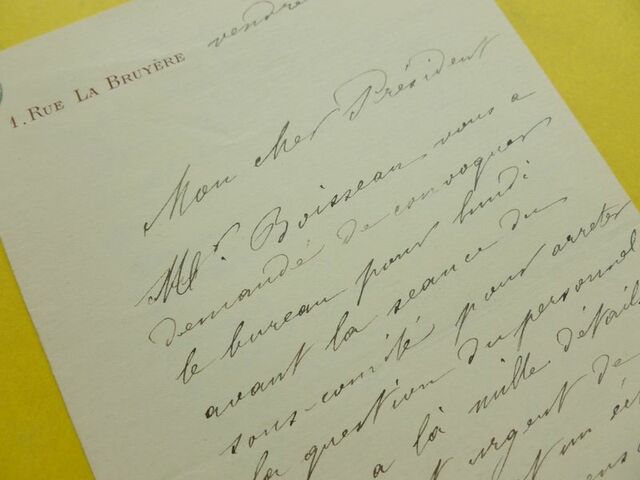 1. RUE LA BRUYÈRE
vendre
Mon cher Président
Mr. Boisseau vous a
demandé de convoquer
le bureau pour lundi
avant la seance du
sous-comité pour arreter
la question du personnel
a là mille détail
urgent de